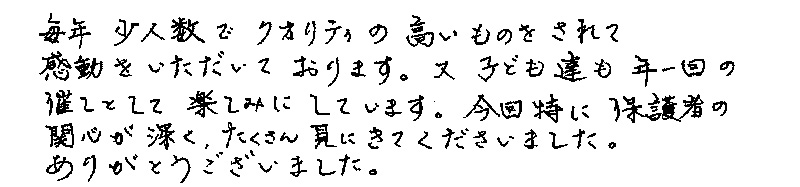 毎年 少人数で クオリティの高いものをされて
感動をいただいております。又 子ども達も年一回の
催しとして楽しみにしています。今回特に保護者の
関心が深く、たくさん見にきてくださいました。
ありがとうございました。